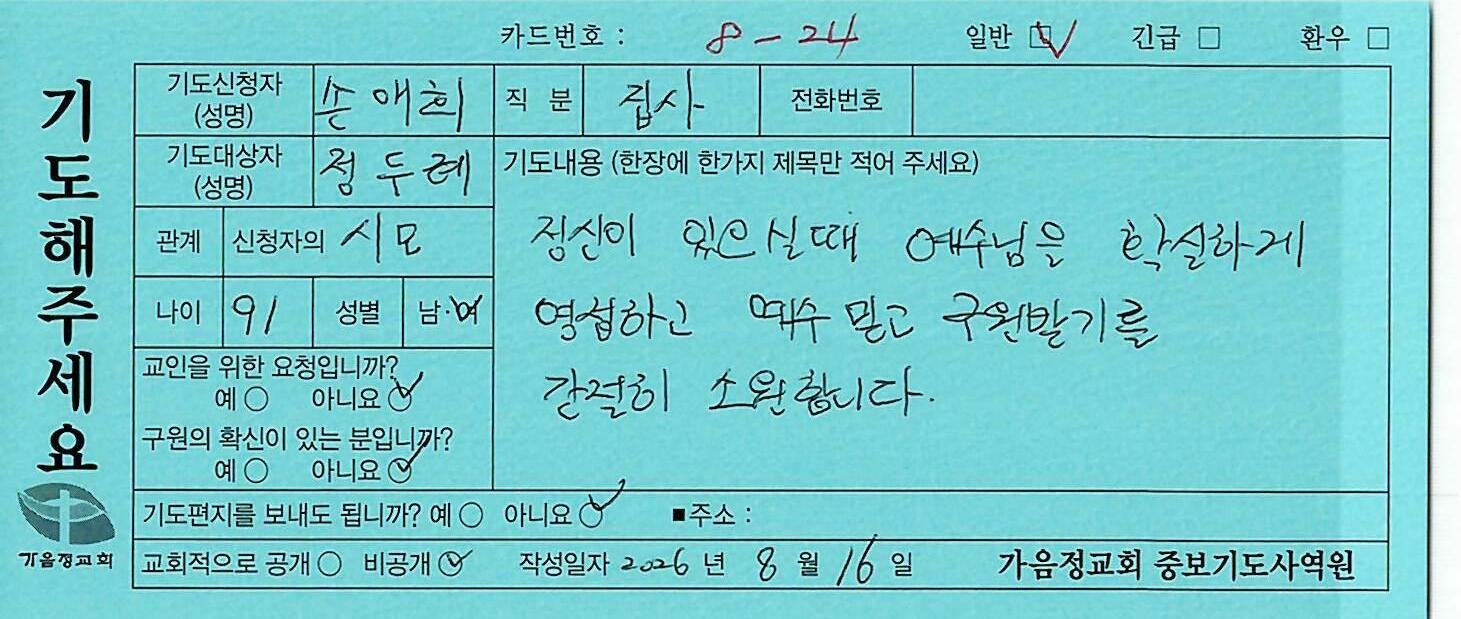 카드번호 : 8-24 일반 ☑ 긴급 □ 환우 □
기도해주세요
기도신청자 (성명) 손애희 직 분 집사 전화번호
기도대상자 (성명) 정두례 기도내용 (한장에 한가지 제목만 적어 주세요)
관계 신청자의 시모
나이 91 성별 남·여
정신이 있으실때 예수님을 확실하게
영접하고 예수 믿고 구원받기를
간절히 소원합니다.
교인을 위한 요청입니까?
예 ○ 아니요 ☑
구원의 확신이 있는 분입니까?
예 ○ 아니요 ☑
기도편지를 보내도 됩니까? 예 ○ 아니요 ☑ ■주소 :
교회적으로 공개 ○ 비공개 ☑ 작성일자 2026 년 8 월 16 일 가음정교회 중보기도사역원
가음정교회